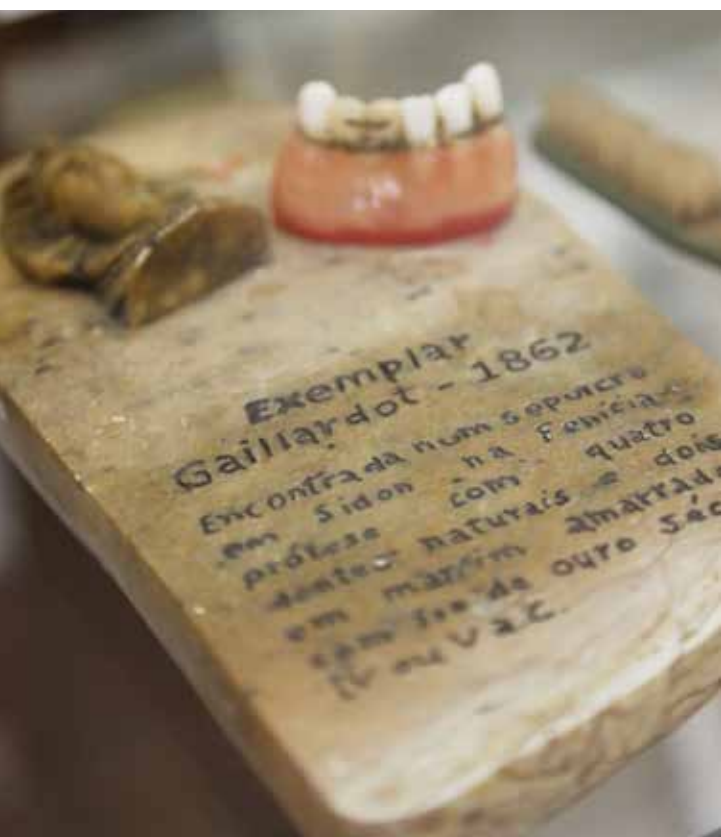 Exemplar
Gaillardot - 1862
Encontrada num sepulcro
em Sidon na Fenícia
prótese com quatro
dentes naturais e dois
em marfim amarrada
com fio de ouro Séc
IV ou V a.C.